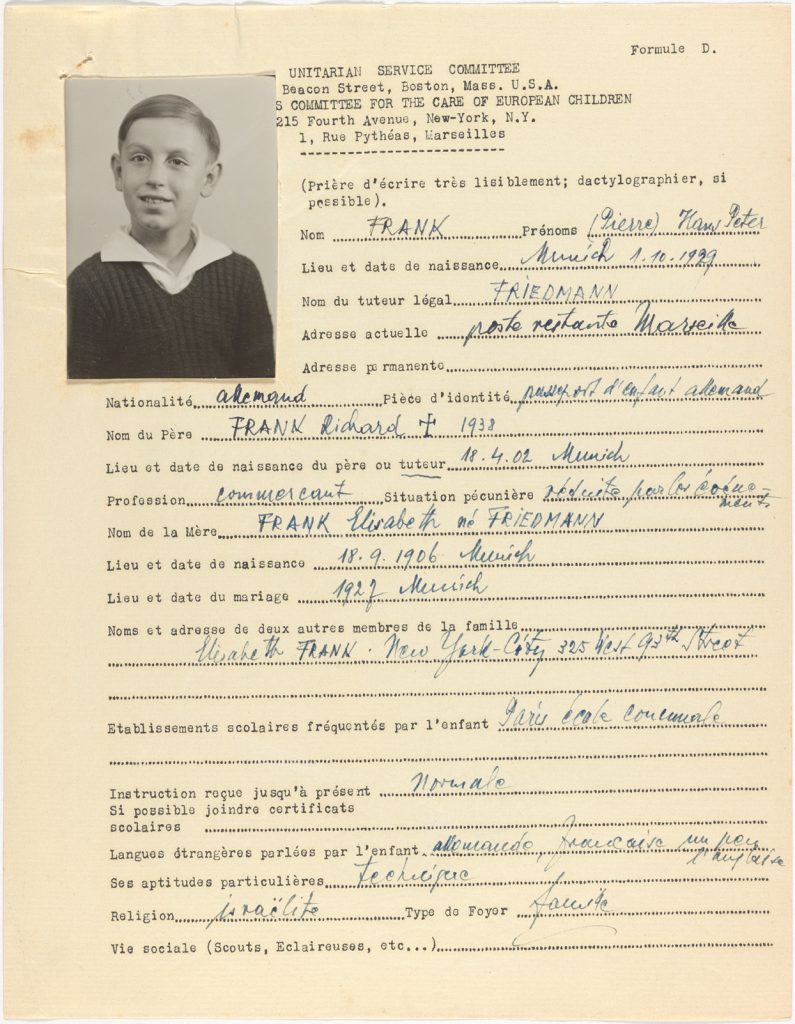 Formule D.
UNITARIAN SERVICE COMMITTEE
Beacon Street, Boston, Mass. U.S.A.
S COMMITTEE FOR THE CARE OF EUROPEAN CHILDREN
215 Fourth Avenue, New-York, N.Y.
1, Rue Pythéas, Marseilles
(Prière d'écrire très lisiblement; dactylographier, si
possible).
Nom FRANK Prénoms (Pierre) Hans Peter
Lieu et date de naissance Munich 1.10.1929
Nom du tuteur légal FRIEDMANN
Adresse actuelle poste restante Marseille
Adresse permanente
Nationalité allemand Pièce d'identité passeport d'enfant allemand
Nom du Père FRANK Richard † 1938
Lieu et date de naissance du père ou tuteur 18.4.02 Munich
Profession commerçant Situation pécunière réduite par les événe-
ments
Nom de la Mère FRANK Elisabeth né FRIEDMANN
Lieu et date de naissance 18.9.1906 Munich
Lieu et date du mariage 1927 Munich
Noms et adresse de deux autres membres de la famille
Elisabeth FRANK. New York-City 325 West 93th Street
Etablissements scolaires fréquentés par l'enfant Paris école communale
Instruction reçue jusqu'à présent Normale
Si possible joindre certificats
scolaires
Langues étrangères parlées par l'enfant allemande, française un peu
l'anglaise
Ses aptitudes particulières technique
Religion israëlite Type de Foyer famille
Vie sociale (Scouts, Eclaireuses, etc...)